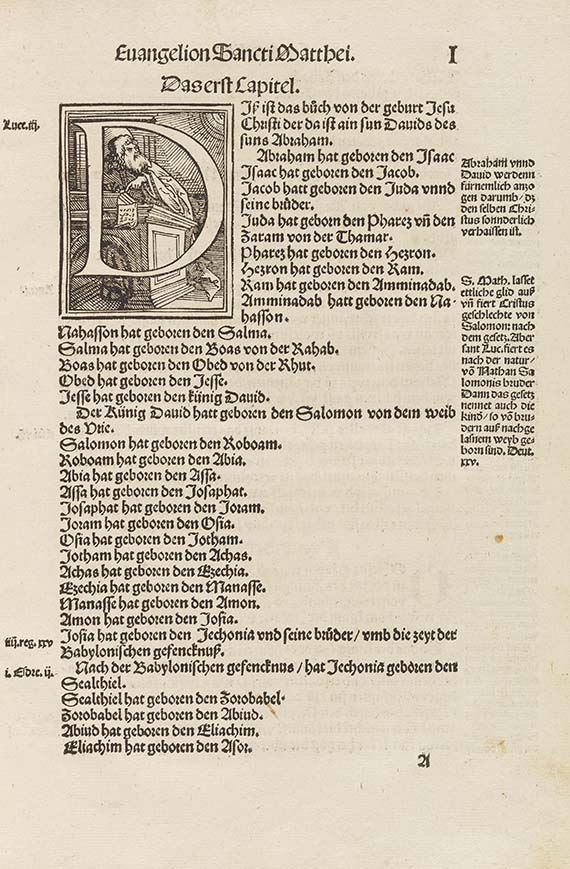 Euangelion Sancti Matthei.
I
Das erst Capitel.
Luce.iij.
D
Jß ist das bůch von der geburt Jesu
Christi der da ist ain sun Dauids des
suns Abraham.
Abraham hat geboren den Isaac
Isaac hat geboren den Jacob.
Jacob hatt geboren den Juda vnnd
seine brůder.
Juda hat geborn den Pharez vñ den
Zaram von der Thamar.
Pharez hat geboren den Hezron.
Hezron hat geboren den Ram.
Ram hat geboren den Amminadab.
Amminadab hatt geboren den Na-
hasson.
Nahasson hat geboren den Salma.
Salma hat geboren den Boas von der Rahab.
Boas hat geboren den Obed von der Rhut.
Obed hat geboren den Jesse.
Jesse hat geboren den künig Dauid.
Der Künig Dauid hatt geboren den Salomon von dem weib
des Vrie.
Salomon hat geboren den Roboam.
Roboam hat geboren den Abia.
Abia hat geboren den Assa.
Assa hat geboren den Josaphat.
Josaphat hat geboren den Joram.
Joram hat geboren den Osia.
Osia hat geboren den Jotham.
Jotham hat geboren den Achas.
Achas hat geboren den Ezechia.
Ezechia hat geboren den Manasse.
Manasse hat geboren den Amon.
Amon hat geboren den Josia.
Josia hat geboren den Jechonia vnd seine brůder/ vmb die zeyt der
Babylonischen gefencknuß.
Nach der Babylonischen gefencknus/ hat Jechonia geboren den
Sealthiel.
Sealthiel hat geboren den Zorobabel.
Zorobabel hat geboren den Abiud.
Abiud hat geboren den Eliachim.
Eliachim hat geboren den Asor.
A
iiij.reg.xxv
i. Esdre.ij.
Abraham vnnd
Dauid werdenn
fürnemlich anzo
gen darumb/ dz
den selben Chri-
stus sonnderlich
verhaissen ist.
S. Math. lasset
ettliche glid auß
vñ fiert Cristus
geschlechte von
Salomon: nach
dem gesetz. Aber
sant Luc. fiert es
nach der natur/
võ Nathan Sa
lomonis bruder
Dann das gesetz
nennet auch die
kind/ so võ brů-
dern auß nachge
lasnem weyb ge-
born sind. Deut.
xxv.